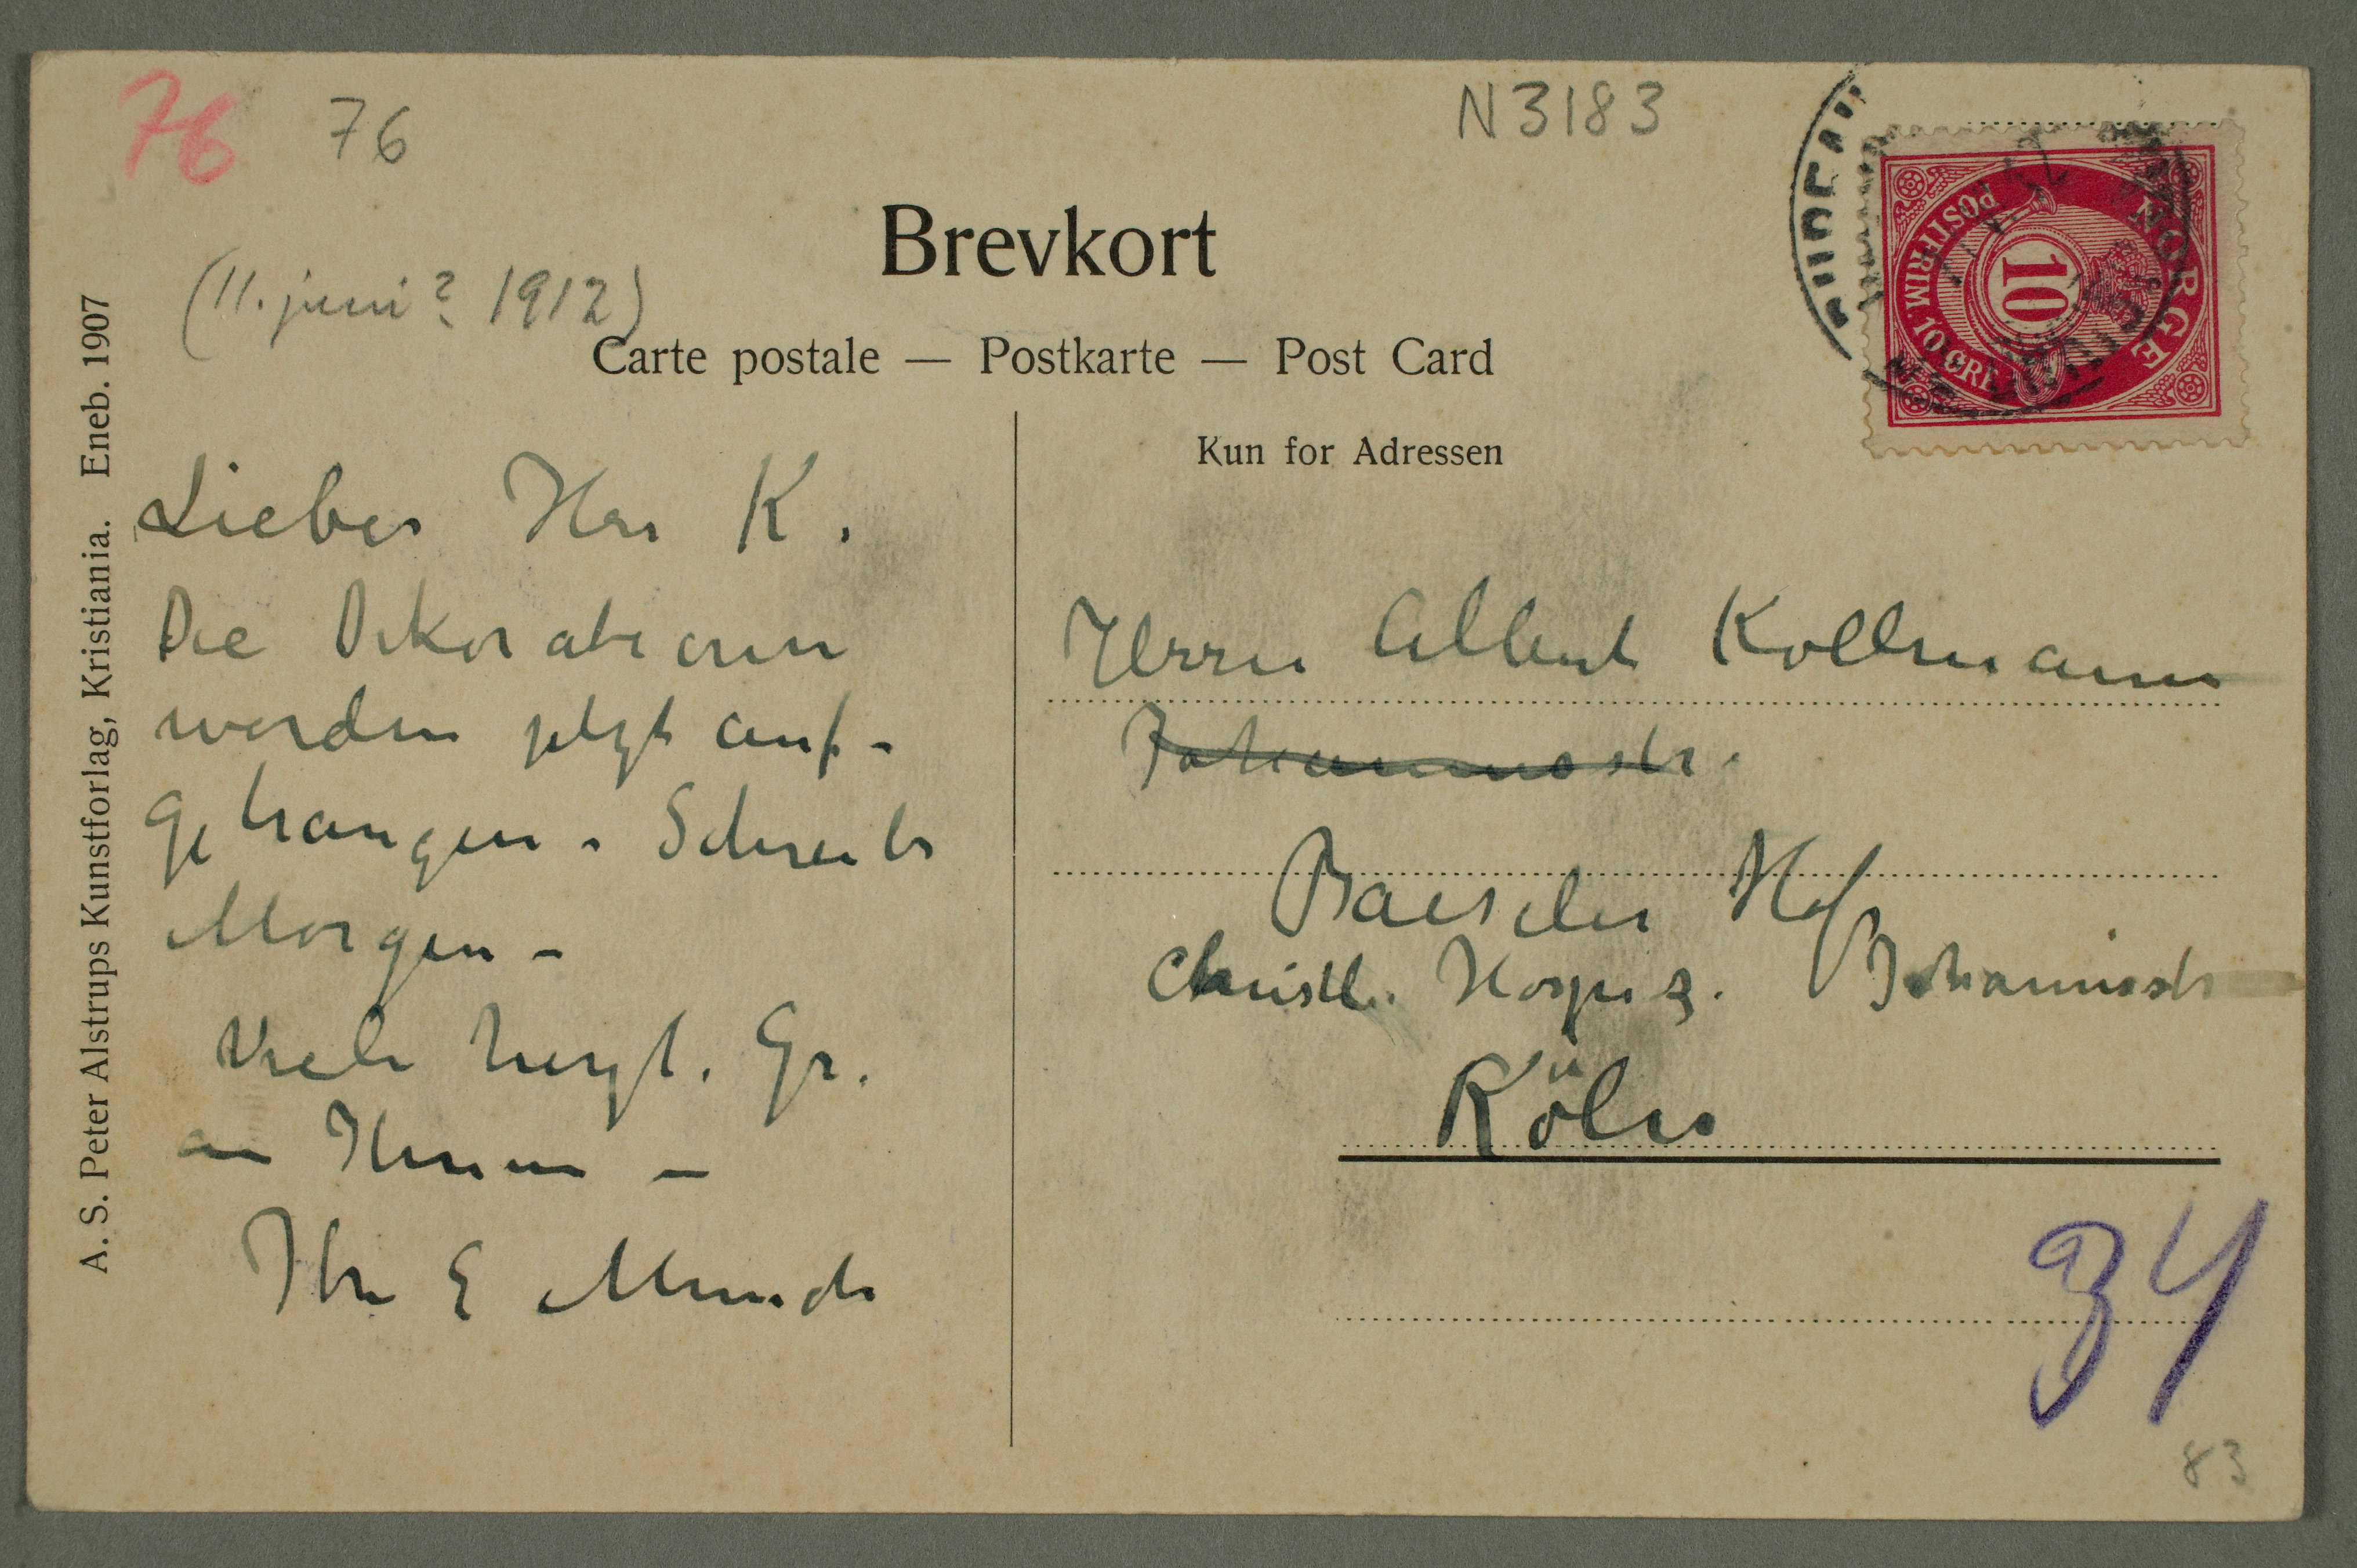 76 76
N3183
Brevkort
(11. juni? 1912)
Carte postale — Postkarte — Post Card
Kun for Adressen
A. S. Peter Alstrups Kunstforlag, Kristiania. Eneb. 1907
NORGE
POSTFRIM. 10 ØRE
10
Lieber Herr K.
Die Dekorationen
werden jetzt auf-
gehangen. Schreibe
Morgen –
Viele herzl. Gr.
an Ihnen –
Ihr E Munch
Herrn Albert Kollmann
Johannisstr.
Baseler Hof
Christl. Hospiz. Johannisstr
Köln
34
83